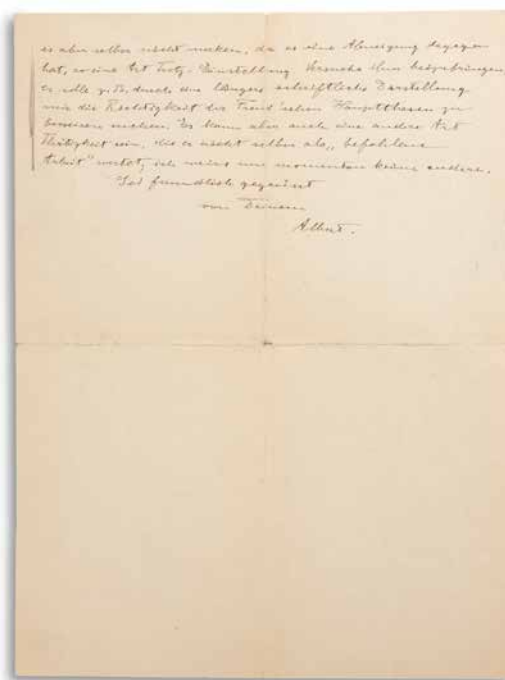 es aber selber nicht merken, da es eine Abneigung dagegen
hat, so eine Art Trotz-Einstellung. Versuche ihm beizubringen
er solle z. B. durch eine längere schriftliche Darstellung
mir die Richtigkeit der Freud'schen Hauptthesen zu
beweisen suchen. Es kann aber auch eine andere Art
Thätigkeit sein, die er nicht selber als „befohlene
Arbeit" wertet; ich weiss nur momentan keine andere.
Sei freundlich gegrüsst
von Deinem
Albert.